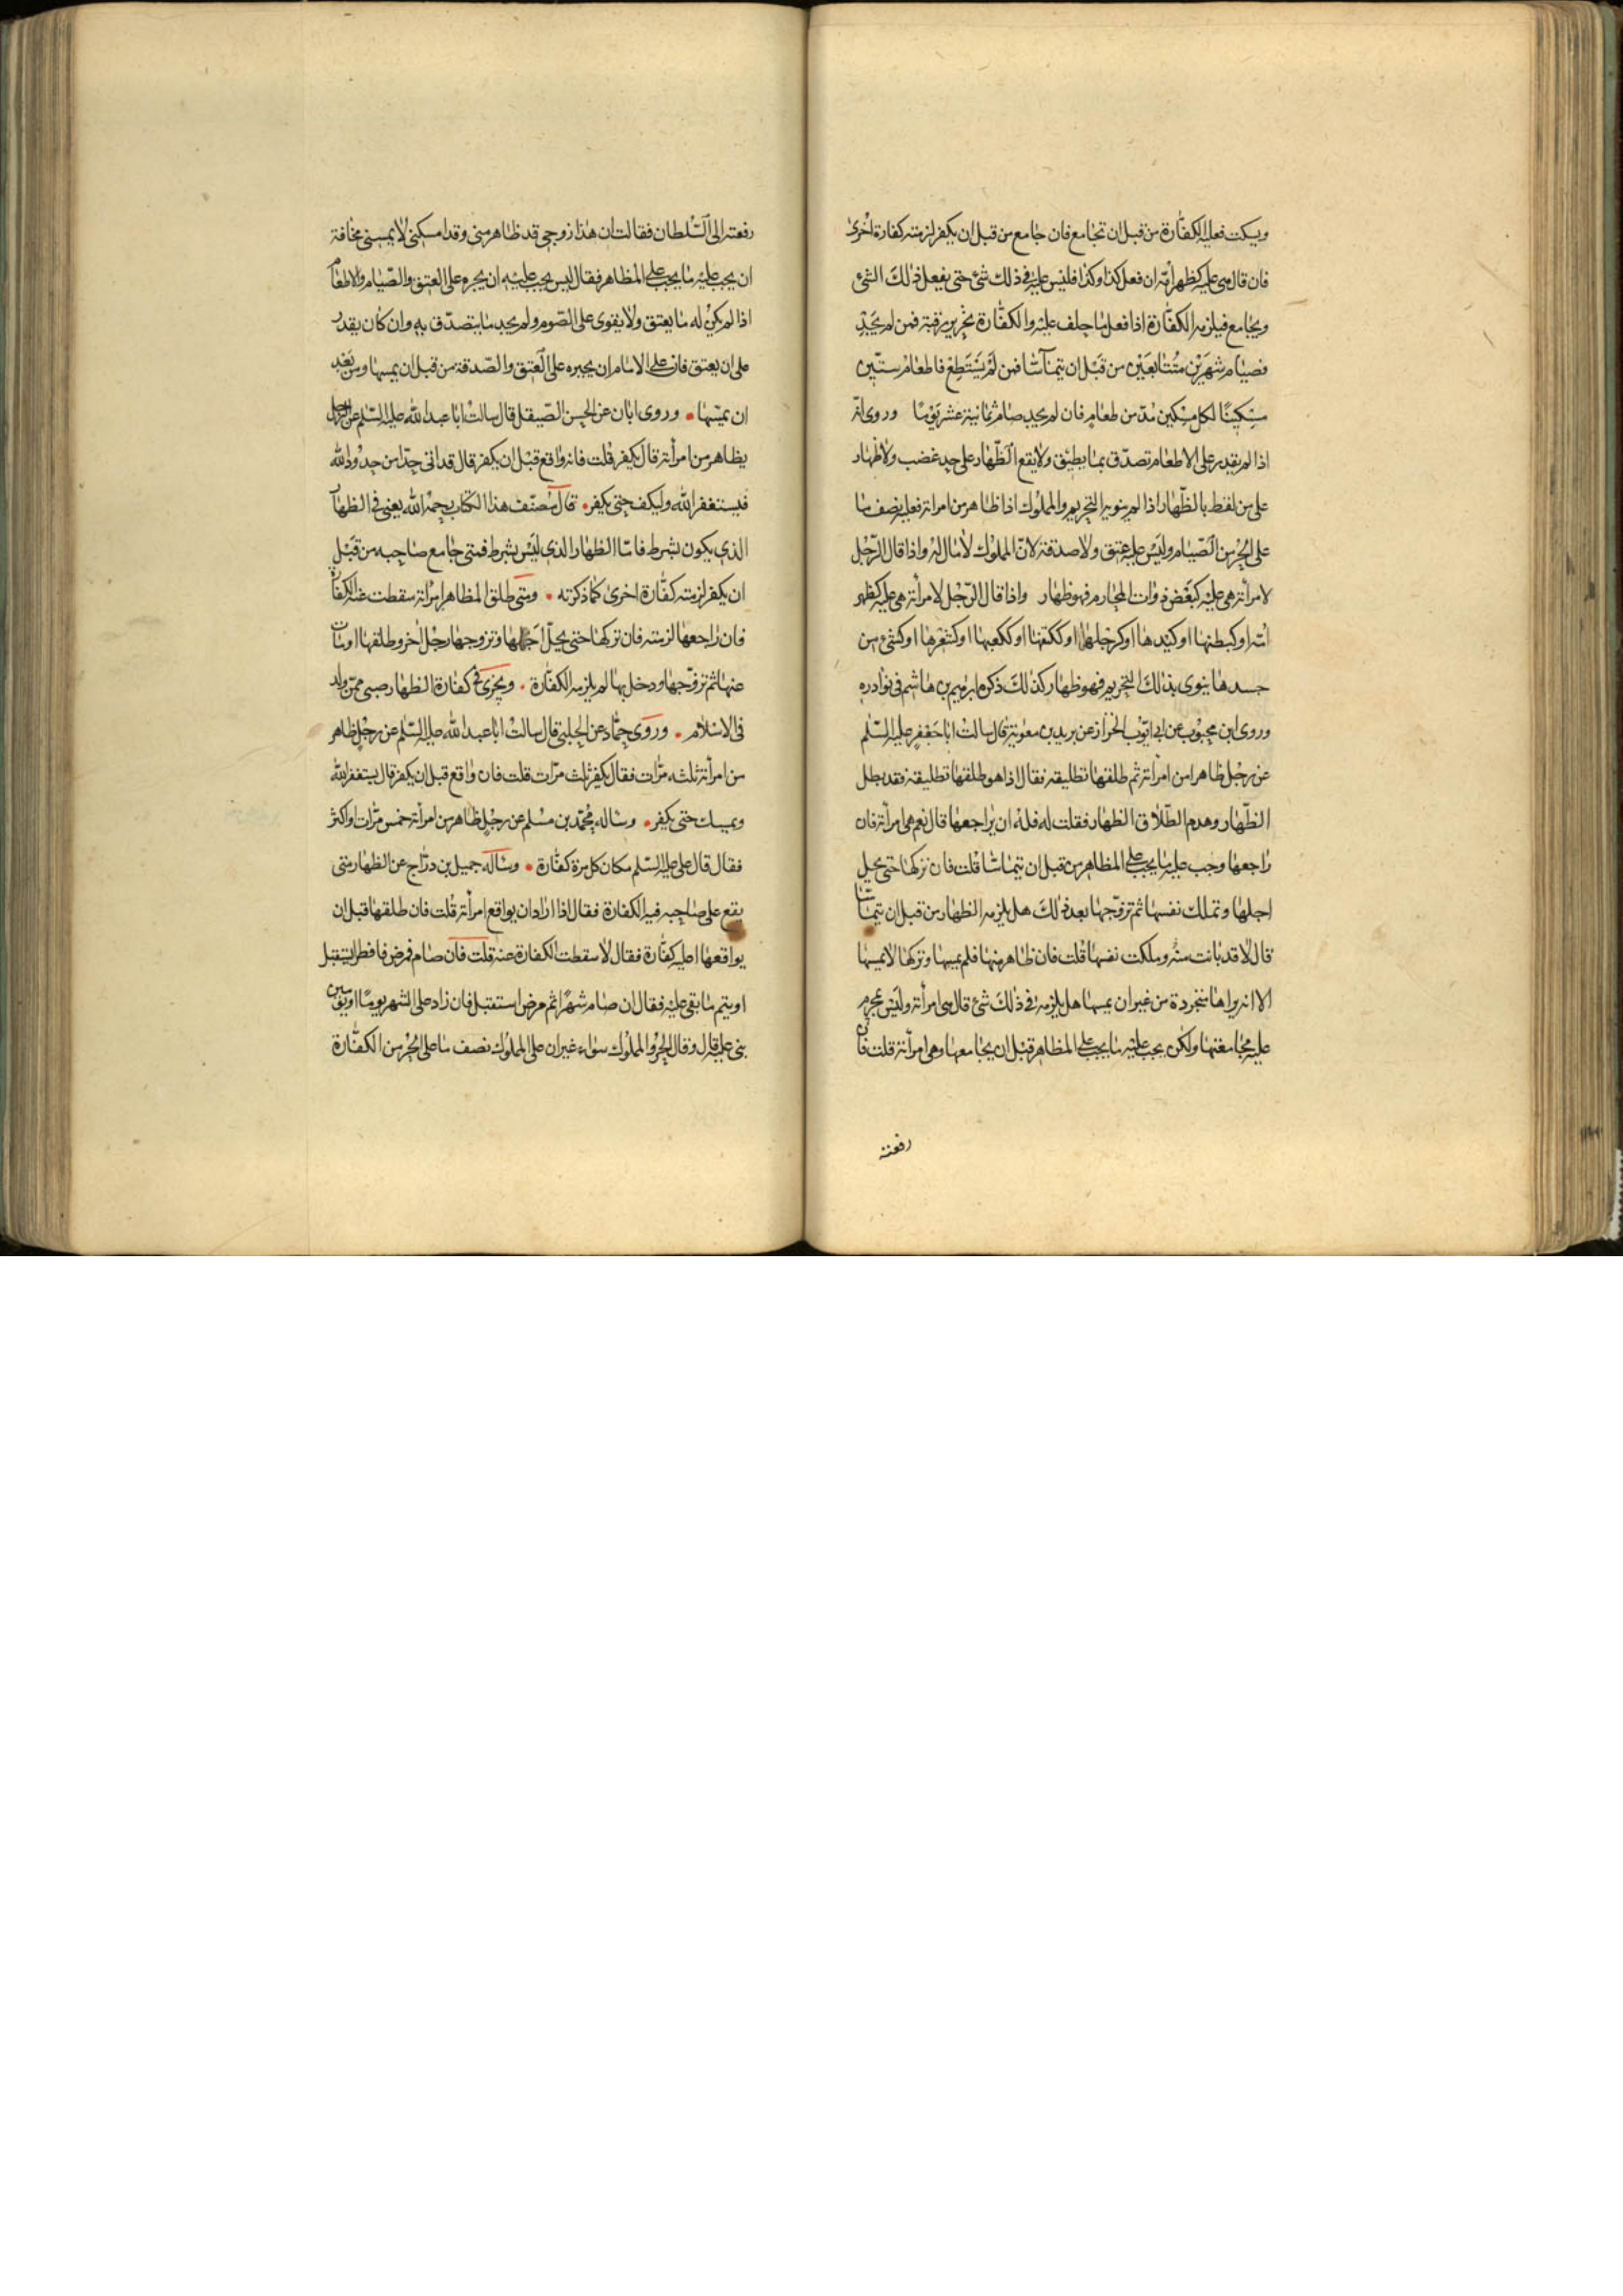 ويسكت فعليه الكفارة من قبل ان تجامع فان جامع من قبل ان يكفر لزمته كفارة اخرى
فان قال هى عليه كظهر امّه ان فعل كذا وكذا فليس عليه في ذلك شئ حتى يفعل ذلك الشئ
ويجامع فيلزمه الكفّارة اذا فعل ما حلف عليه والكفّارة تحرير رقبة فمن لم يَجِدْ
فصيام شهرَيْن متُتابعَيْن من قَبْل ان يتمآسّا فمن لَمْ يَسْتَطِعْ فاطعامُ ستّين
مسكينًا لكل مسكين مُدّ من طعام فان لم يجد صام ثمانية عشر يَوْمًا وروى انّه
اذا لم يقدر على الاطعام تصدّق بما يطيق ولا يقع الظّهار على حد غضب ولا ظهار
على من لفظ بالظّهار اذا لم ينو به التحريم والمملوك اذا ظاهر من امراته فعليه نصف ما
على الحُرّ من الصّيام وليس عليه عتق ولا صدقة لانّ المملوك لا مال له واذا قال الرّجل
لامرأته هى عليه كبعْض ذوات المحارم فهو ظهار واذا قال الرّجل لامرأته هى عليه كظهر
امّه او كبطنها او كيدها او كرجلها او ككفّها او ككعبها او كشَعْرها او كشئ من
جسدها ينوى بذلك التحريم فهو ظهار كذلك ذكره ابرهيم بن هاشم في نوادره
وروى ابن محبوب عن ابى ايّوب الخراز عن بريد بن معوية قال سالتُ ابا جعْفر عليه السّلم
عن رجُل ظاهر من امرأته ثم طلقها تطليقة فقال اذا هو طلقها تطليقة فقد بطل
الظّهار وهدم الطّلاق الظهار فقلت له فلهُ ان يراجعها قال نعم هى امرأته فان
راجعها وجب عليه ما يجب على المظاهر من قبل ان يتماسّا قلت فان تركها حتى يحل
اجلها وتملك نفسها ثم تزوّجها بعد ذلك هل يلزمه الظهار من قبل ان يتماسّا
قال لا قد بانت منهُ وملكت نفسها قلت فان ظاهر منها فلم يمسها وتركها لا يمسها
الا انه يراها متجردة من غير ان يمسها هل يلزمه في ذلك شئ قال هى امرأته وليس بمحرم
عليه مجامعتها ولكن يجب عليه ما يجب على المظاهر قبل ان يجامعها وهى امرأته قلت فان
رفعته
رفعته الى السّلطان فقالت ان هذا زوجى قد ظاهر منى وقد امسكنى لا يمسنى مخافة
ان يجب عليه ما يجب على المظاهر فقال ليس يجب عليه ان يجبره على العتق والصّيام والاطعام
اذا لم يكن له ما يعتق ولا يقوى على الصّوم ولم يجد ما يتصدّق به وان كان يقدر
على ان يعتق فان على الامام ان يجبره على العتق والصّدقة من قبل ان يمسها ومن بَعْد
ان يمسّها • وروى ابان عن الحسن الصّيقل قال سالتُ ابا عبد الله عليه السّلم عن الرّجل
يظاهر من امرأته قال يكفر قلت فانه واقع قبْل ان يكفر قال قد اتى حدّا من حدُود الله
فيستغفر الله وليكف حتى يكفر • قال مُصنّف هذا الكتاب رحِمهُ الله يعنى في الظهار
الذى يكون بشرط فامّا الظهار الذى ليْس بشرط فمتى جامع صاحبه من قَبْل
ان يكفر لزمته كفّارة اخرى كما ذكرته • ومتى طلق المظاهر امرأته سقطت عنه الكفّارة
فان راجعها لزمته فان تركها حتى يحلّ اَجَلها وتزوجها رجُل اخر وطلقها او مات
عنها ثم تزوّجها ودخل بها لم يلزمه الكفّارة • ويجزى في كفّارة الظهار صبى ممّن ولد
فى الاسلام • وروى حمّاد عن الحلبى قال سالتُ ابا عبد الله عليه السّلم عن رجُلٍ ظاهر
من امرأته ثلثه مرّات فقال يكفر ثلث مرّات قلت فان واقع قبل ان يكفر قال يستغفر الله
ويمسك حتى يكفر • وساله مُحمّد بن مسْلم عن رجُلٍ ظاهر من امرأته خمس مرّات او اكثر
فقال قال على عليه السّلم مكان كل مرة كفّارة • وساله جميل بن درّاج عن الظهار متى
يقع على صاحبه فيه الكفّارة فقال اذا اراد ان يواقع امرأته قُلت فان طلقها قبل ان
يواقعها اعليه كفّارة فقال لا سقطت الكفارة عنه قلت فان صام فمرض فافطر ايستقبل
او يتم ما بقى عليه فقال ان صام شهرًا ثم مرض استقبل فان زاد على الشهر يومًا او يومين
بنى عليه قال وقال الحُرّ والمملُوك سواء غير ان على المملوك نصف ما على الحُرّ من الكفّارة